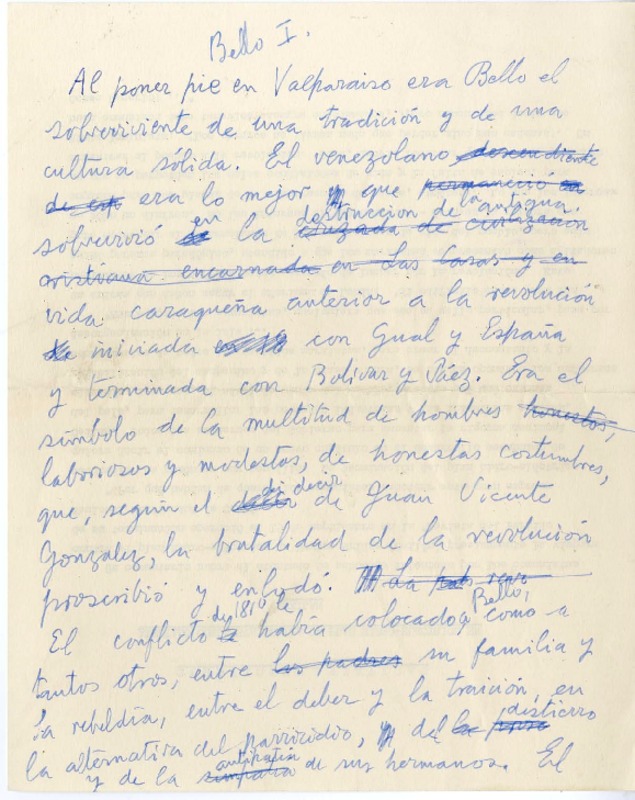 Bello I.
Al poner pie en Valparaiso era Bello el
sobreviviente de una tradición y de una
cultura sólida. El venezolano descendiente
de era lo mejor que permaneció en
destruccion de la antigua.
sobrevivió en la cruzada de civilización
cristiana encarnada en Las Casas y en
vida caraqueña anterior a la revolución
iniciada con Gual y España
y terminada con Bolivar y Páez. Era el
símbolo de la multitud de hombres honestos,
laboriosos y modestos, de honestas costumbres,
que, según el decir de Juan Vicente
Gonzalez, la brutalidad de la revolución
proscribió y enlodó. La
El conflicto de 1810 le había colocado a Bello, como a
tantos otros, entre los padres su familia y
la rebeldía, entre el deber y la traición, en
la alternativa del parricidio, del destierro
y de la simpatia antipatía de sus hermanos. El